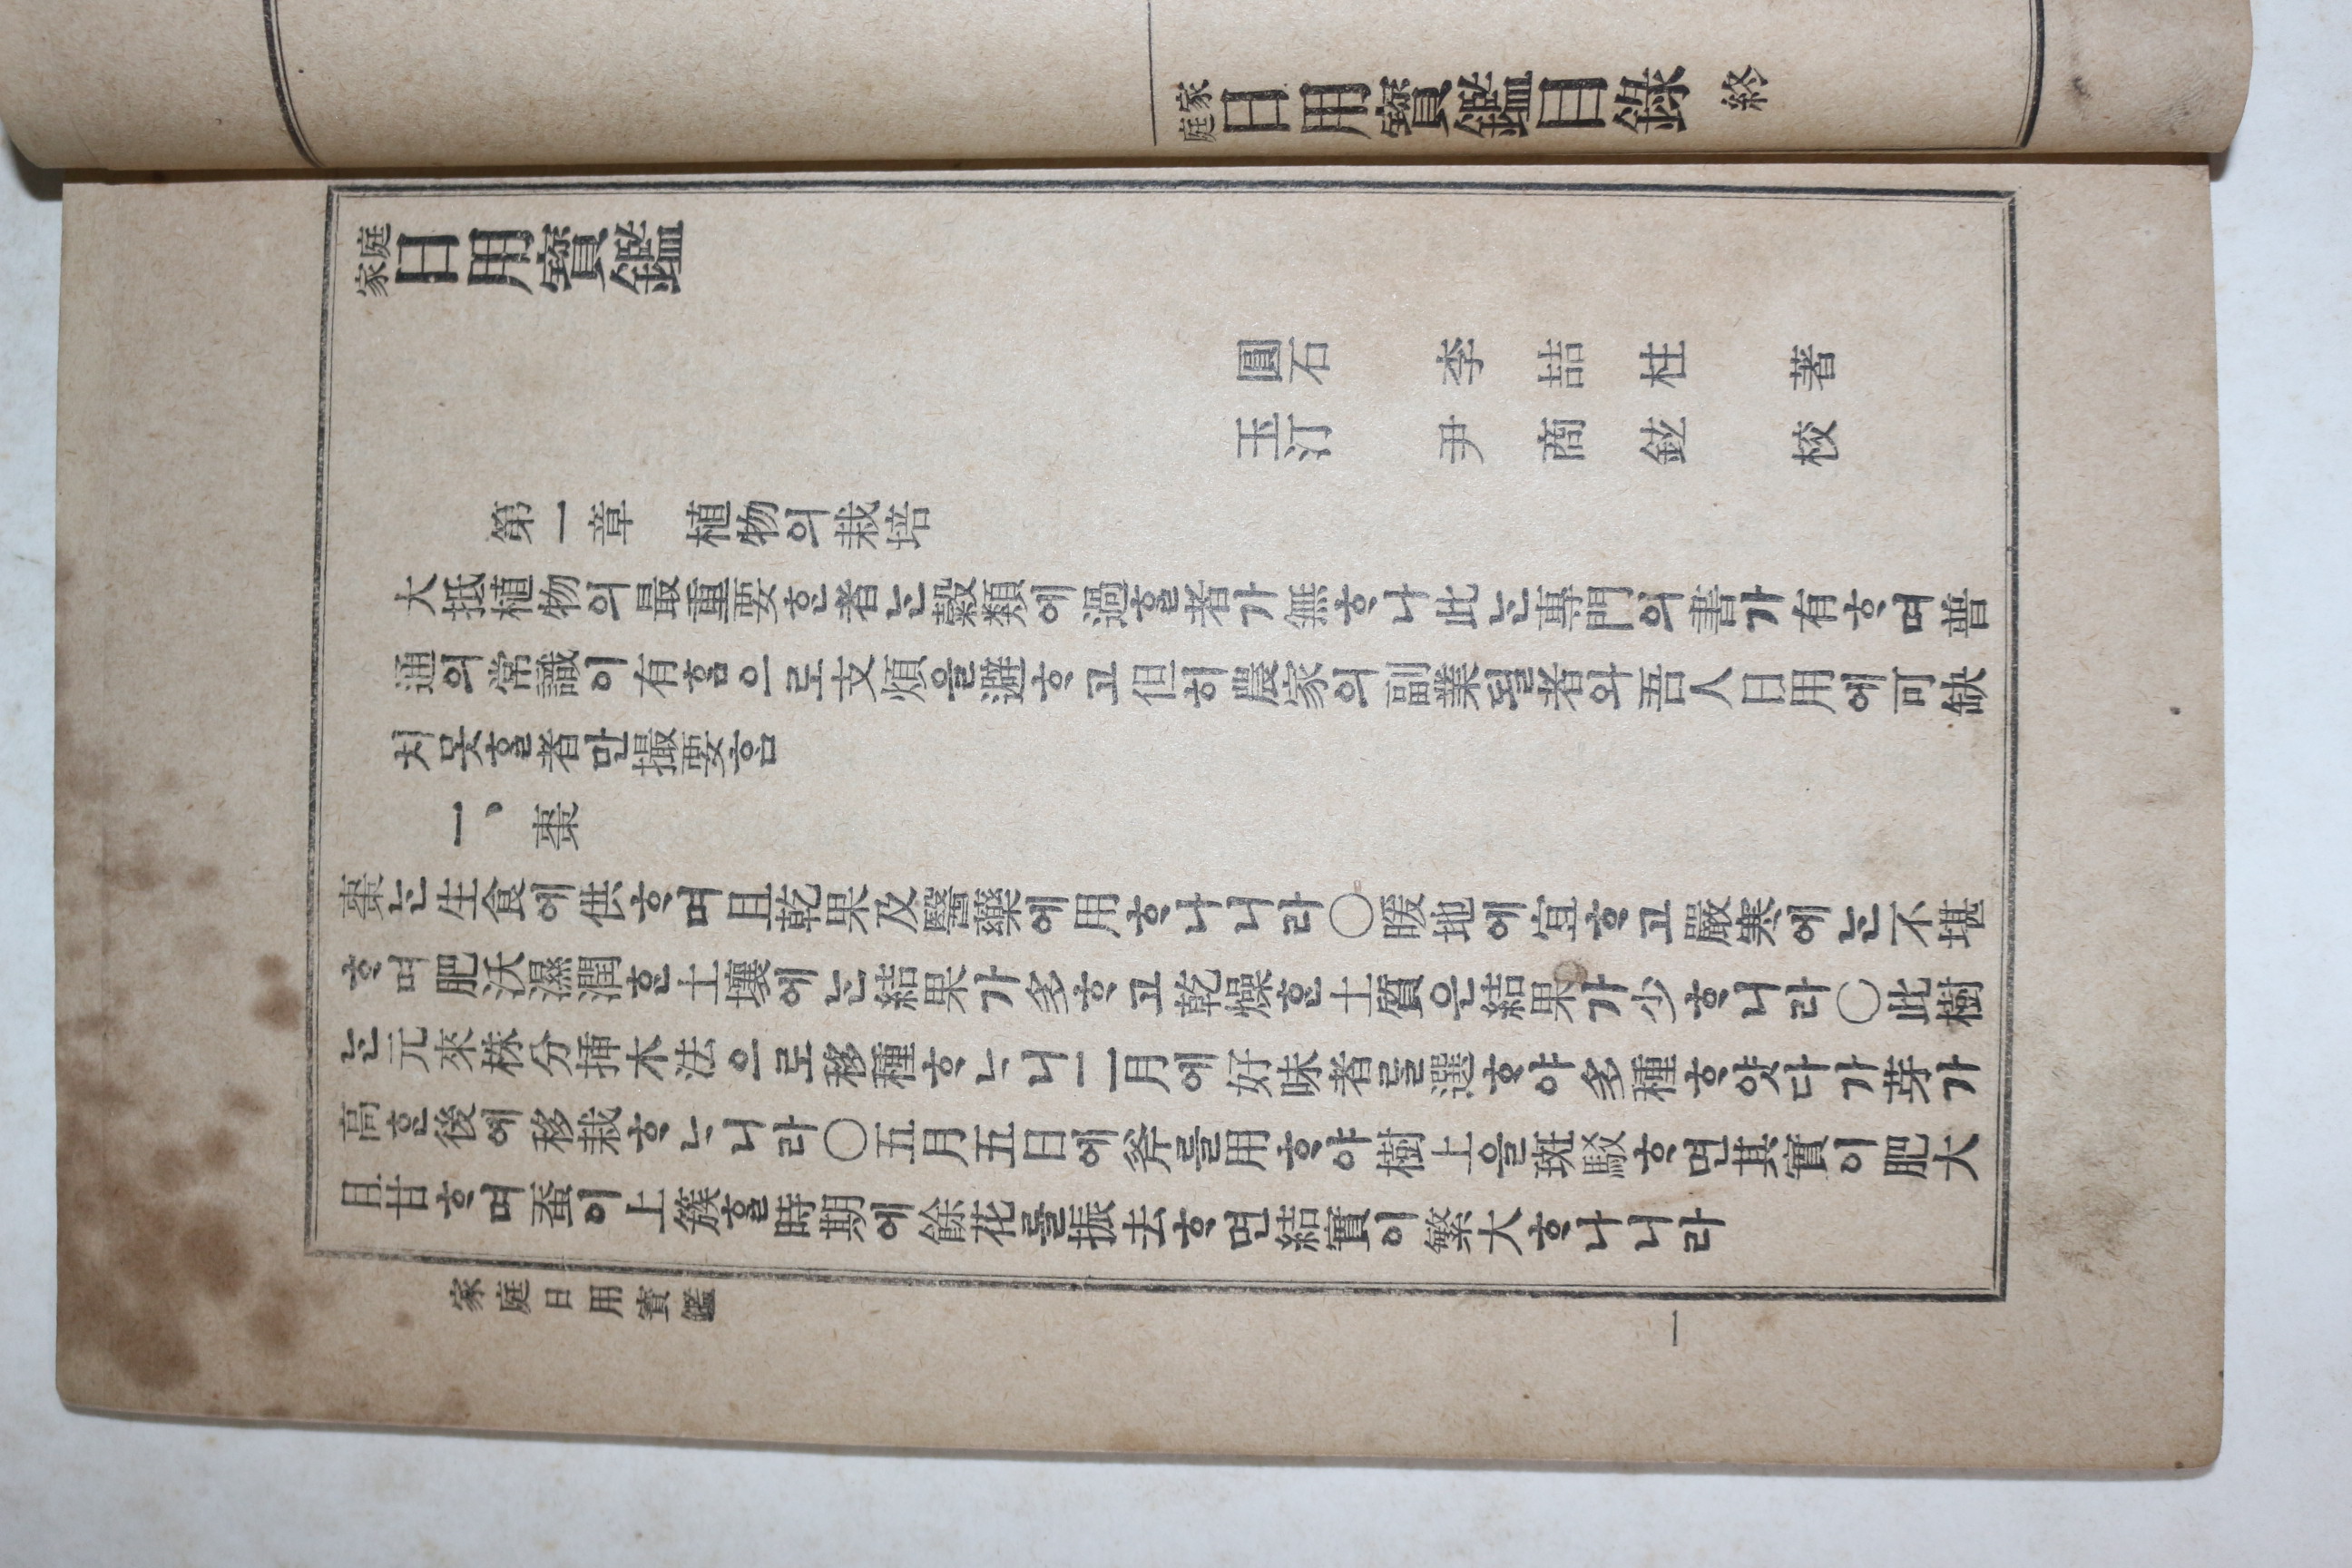 家庭 日用寶鑑目錄 終
家庭 日用寶鑑
圓石 李喆柱 著
玉汀 尹商鉉 校
第一章 植物의栽培
大抵植物의最重要ᄒᆞᆫ者ᄂᆞᆫ穀類에過ᄒᆞᆯ者가無ᄒᆞ나此ᄂᆞᆫ專門의書가有ᄒᆞ며普
通의常識이有ᄒᆞᆷ으로支煩을避ᄒᆞ고但히農家의副業될者와吾人日用에可缺
치못ᄒᆞᆯ者만撮要ᄒᆞᆷ
一、棗
棗ᄂᆞᆫ生食에供ᄒᆞ며且乾果及醫藥에用ᄒᆞ나니라〇暖地에宜ᄒᆞ고嚴寒에ᄂᆞᆫ不堪
ᄒᆞ며肥沃濕潤ᄒᆞᆫ土壤에ᄂᆞᆫ結果가多ᄒᆞ고乾燥ᄒᆞᆫ土質은結果가少ᄒᆞ니라〇此樹
ᄂᆞᆫ元來株分揷木法으로移種ᄒᆞᄂᆞ니一二月에好味者를選ᄒᆞ야多種ᄒᆞ얏다가芽가
高ᄒᆞᆫ後에移栽ᄒᆞᄂᆞ니라〇五月五日에斧를用ᄒᆞ야樹上을斑駁ᄒᆞ면其實이肥大
且甘ᄒᆞ며蚕이上簇ᄒᆞᆯ時期에餘花를振去ᄒᆞ면結實이繁大ᄒᆞ나니라
家庭日用寶鑑
一